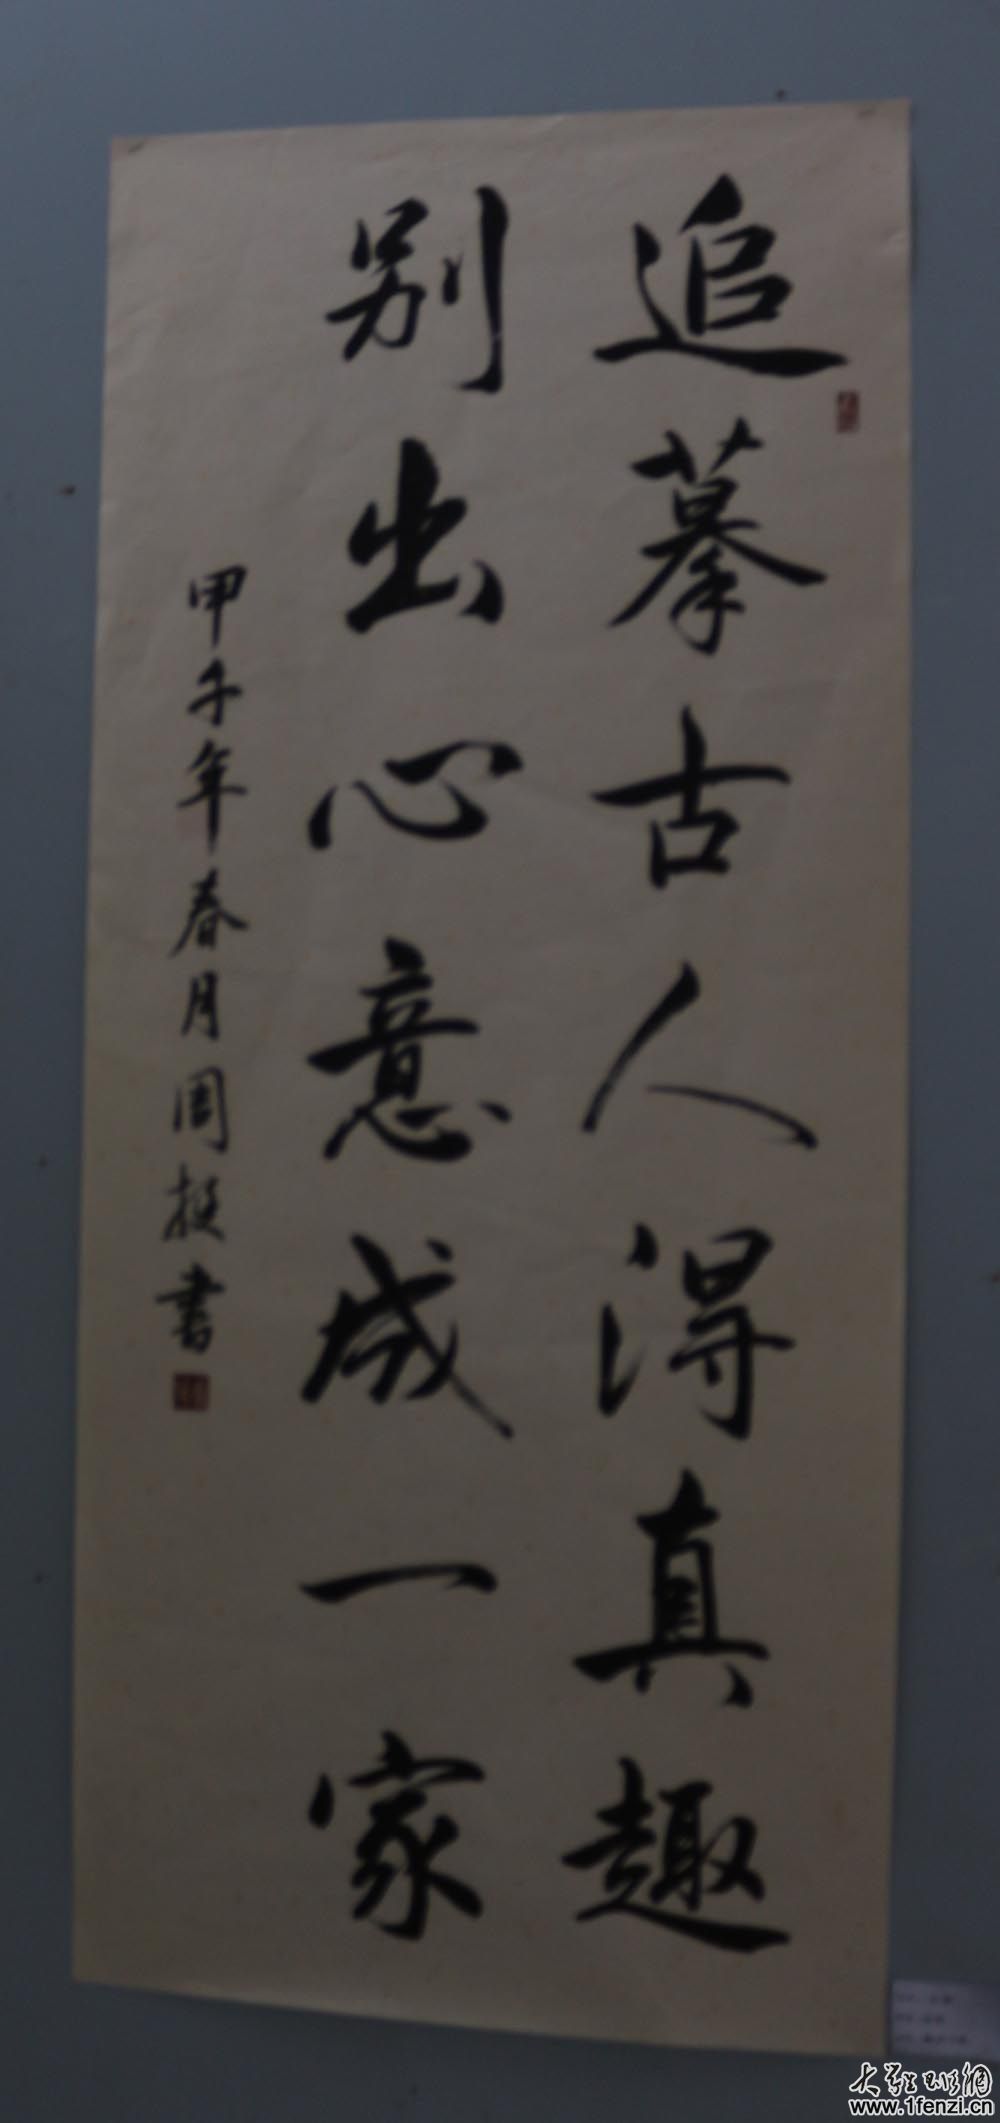 追摹古人得真趣
别出心意成一家
甲子年春月周挺書
www.1fenzi.cn